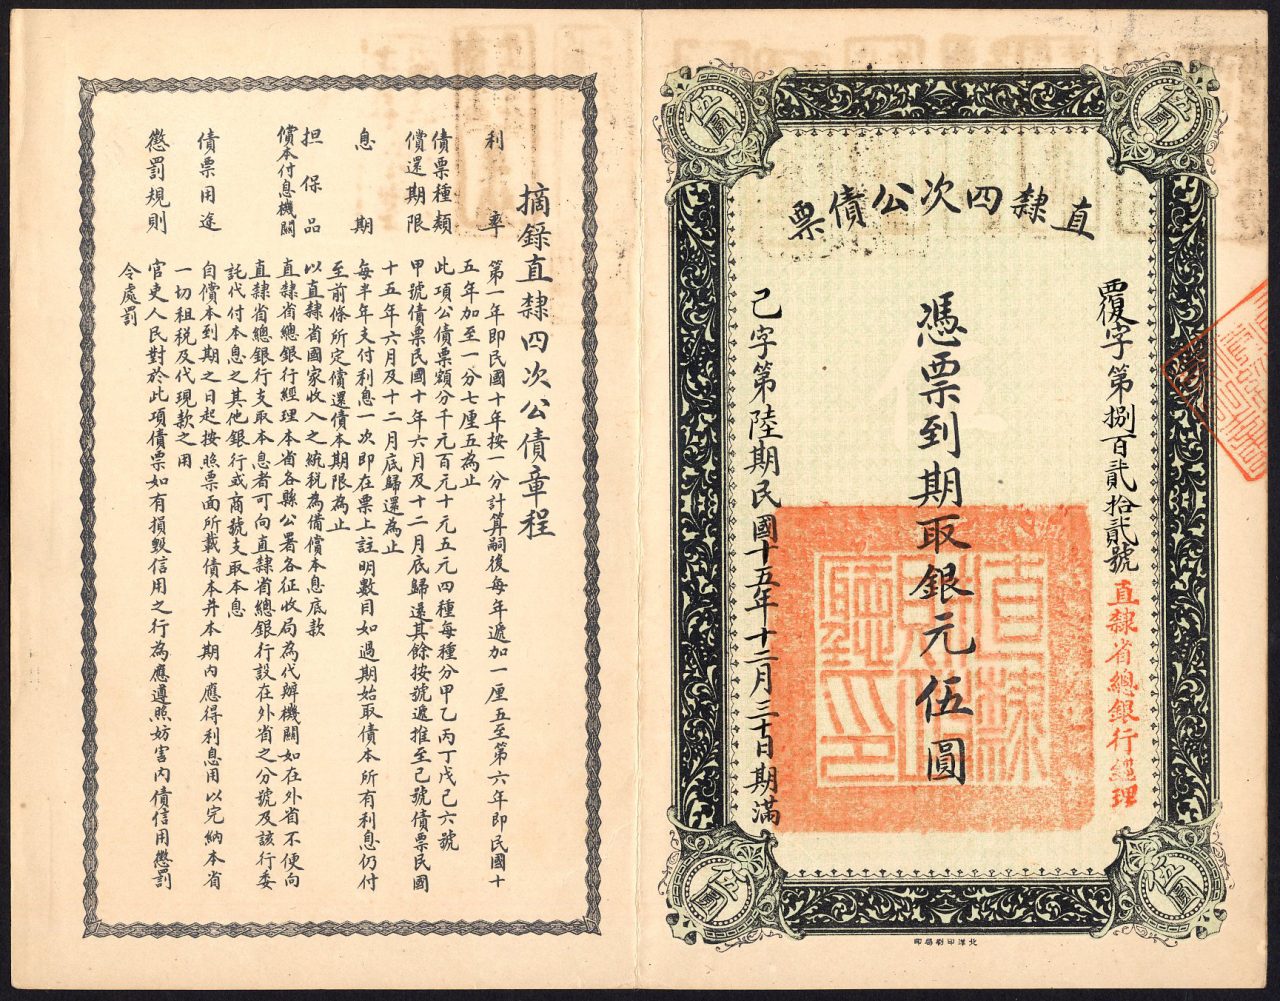 直隸四次公債票
覆字第捌百貳拾貳號
直隸省總銀行經理
憑票到期取銀元伍圓
己字第陸期民國十五年十二月三十日期滿
伍圓
伍圓
伍圓
伍圓
直隸財政廳印
北洋印刷局印
摘錄直隸四次公債章程
利率
第一年即民國十年按一分計算嗣後每年遞加一厘五至第六年即民國十
五年加至一分七厘五為止
債票種類
此項公債票額分千元百元十元五元四種每種分甲乙丙丁戊己六號
償還期限
甲號債票民國十年六月及十二月底歸還其餘按號遞推至己號債票民國
十五年六月及十二月底歸還為止
息期
每半年支付利息一次即在票上註明數目如過期始取債本所有利息仍付
至前條所定償還債本期限為止
担保品
以直隸省國家收入之統税為備償本息底款
償本付息機關
直隸省總銀行經理本省各縣公署各征收局為代辦機關如在外省不便向
直隸省總銀行支取本息者可向直隸省總銀行設在外省之分號及該行委
託代付本息之其他銀行或商號支取本息
債票用途
自償本到期之日起按照票面所載債本并本期內應得利息用以完納本省
一切租税及代現款之用
懲罰規則
官吏人民對於此項債票如有損毀信用之行為應遵照妨害內債信用懲罰
令處罰